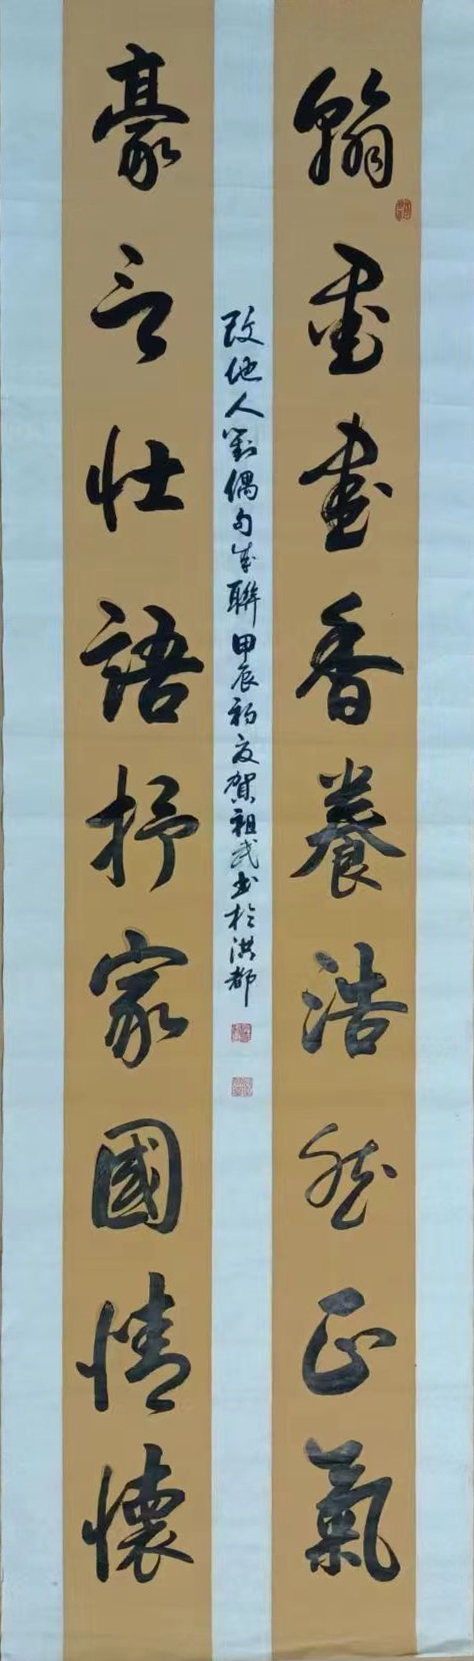 翰墨書香養浩然正氣
豪言壮語抒家國情懷
改他人對偶句成聯甲辰初夏賀祖武书於洪都